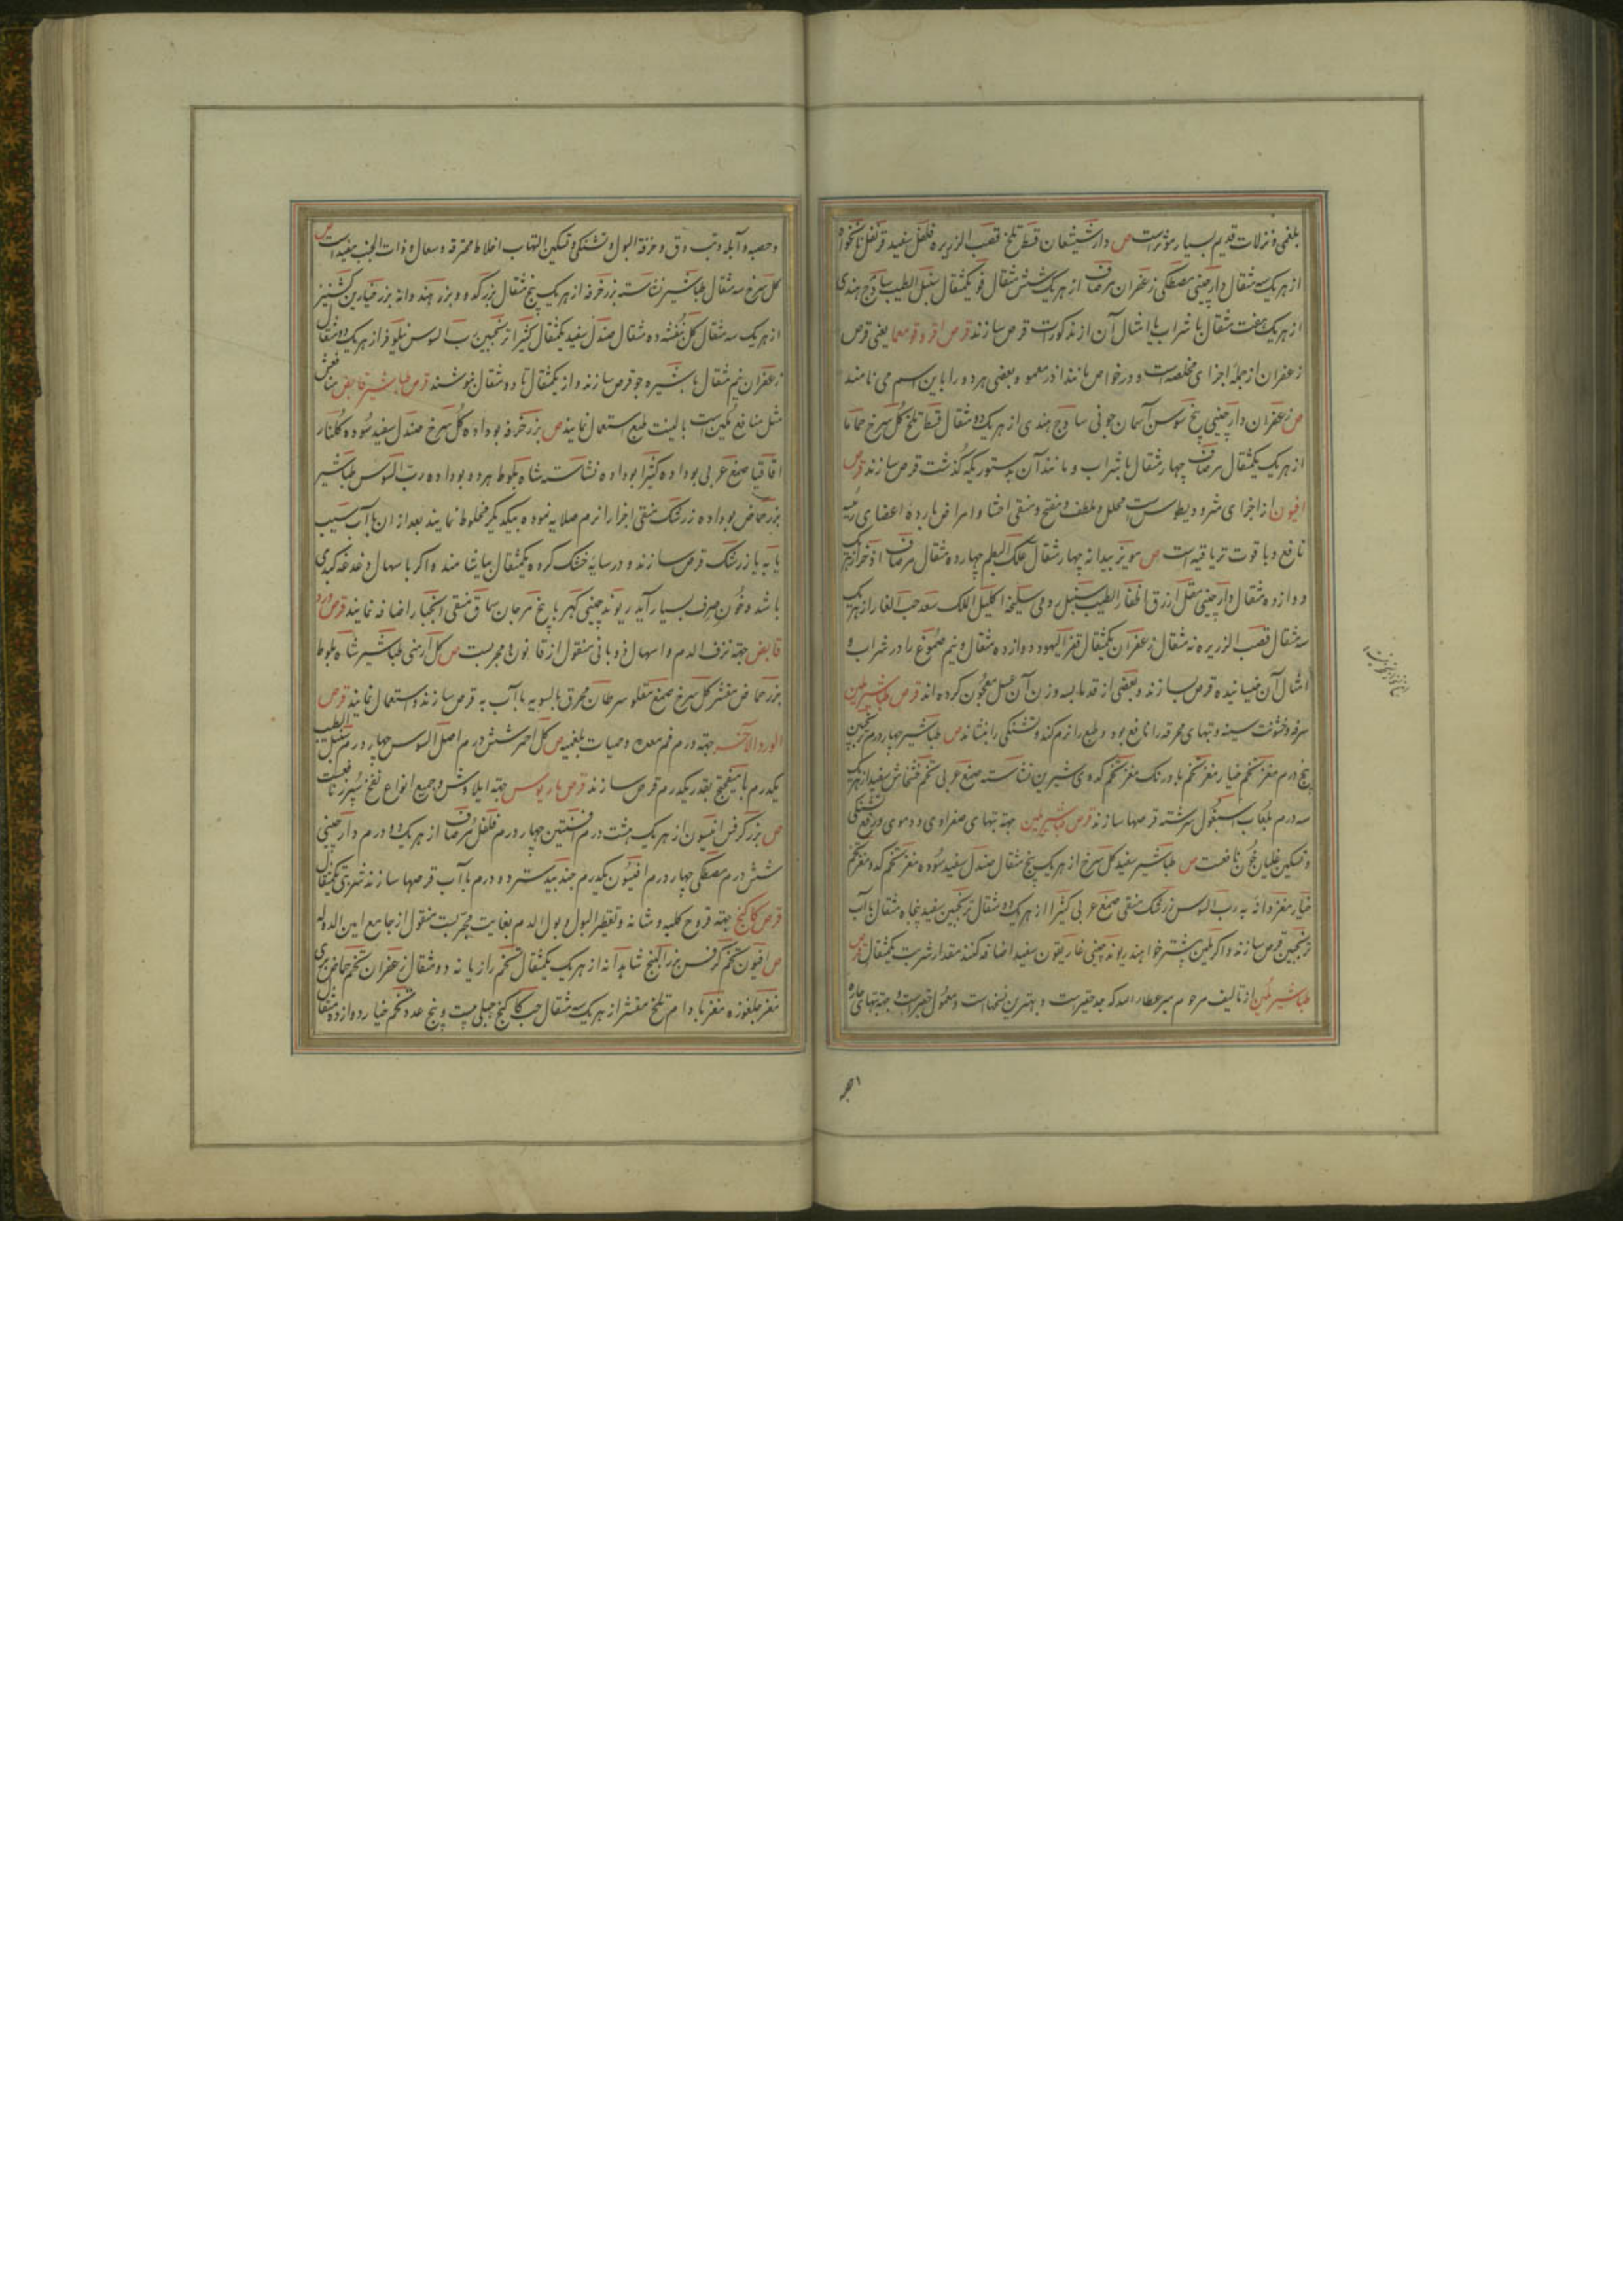 بلغمی و نزلات قدیم بسیار مؤثر است ص دارشیشعان قسط تلخ قصب الزریره فلفل سفید قرنفل نانخواه
از هر یک سه مثقال دارچینی مصطکی زعفران مرصاف از هر یک شش مثقال فو یکمثقال سنبل الطیب ساذج هندی
از هر یک هفت مثقال با شراب یا امثال آن از مذکورات قرص سازند قرص اقروقومعما یعنی قرص
زعفران از جملهٔ اجزای مخلصه است و در خواص مانند اندرمعمو و بعضی هر دو را باین اسم می نامند
ص زعفران دارچینی بیخ سوسن آسمان جونی ساذج هندی از هر یک دو مثقال قسط تلخ گل سرخ حماما
از هر یک یکمثقال مرصاف چهار مثقال با شراب و مانند آن بدستوریکه گذشت قرص سازند قرص
افیون از اجزای مثرودیطوس است محلل و ملطف و مفتح و منقی احشا و امراض بارده اعضای رئیسه
نافع و با قوت تریاقیه است ص مویز بیدانه چهار مثقال علک البطم چهارده مثقال مرصاف اذخر از هر یک
دوازده مثقال دارچینی مقل ازرق اظفار الطیب سنبل رومی سلیخه اکلیل الملک سعد حب الغار از هر یک
سه مثقال قصب الزریره نه مثقال زعفران یکمثقال قفر الیهود دوازده مثقال و نیم صموغ را در شراب و
امثال آن خیسانیده قرص سازند و بعضی از قدما بسه وزن آن عسل معجون کرده اند قرص طباشیر ملین
سرفه و خشونت سینه و تبهای محرقه را نافع بود و طبع را نرم کند و تشنگی را بنشاند ص طباشیر چهار درم ترنجبین
پنج درم مغز تخم خیار مغز تخم بادرنک مغز تخم کدوی شیرین نشاسته صمغ عربی تخم خشخاش سفید از هر یک
سه درم بلعاب اسبغول سرشته قرصها سازند قرص طباشیر ملین جهة تبهای صفراوی و دموی و رفع تشنگی
و تسکین غلیان خون نافعست ص طباشیر سفید گل سرخ از هر یک پنج مثقال صندل سفید سوده مغز تخم کدو مغز تخم
خیار مغز دانه به رب السوس زرشک منقی صمغ عربی کتیرا از هر یک دو مثقال ترنجبین سفید پنجاه مثقال با آب
ترنجبین قرص سازند و اگر ملین بیشتر خواهند ریوند چینی غاریقون سفید اضافه کنند مقدار شربت یکمثقال قرص
طباشیر ملین از تالیف مرحوم میر عطاء الله که جد حقیر است و بهترین نسخهاست و معمول حقیر است و جهة تبهای حاره
و حصبه و آبله و تب دق و حرقة البول و تشنگی و تسکین التهاب اخلاط محترقه و سعال و ذات الجنب مفید است ص
گل سرخ سه مثقال طباشیر نشاسته بزر خرفه از هر یک پنج مثقال بزر کدو و بزر هندوانه بزر خیارین کشنیز
از هر یک سه مثقال گل بنفشه ده مثقال صندل سفید یکمثقال کتیرا ترنجبین رب السوس نیلوفر از هر یک دو مثقال
زعفران نیم مثقال با شیره جو قرص سازند و از یکمثقال تا دو مثقال بنوشند قرص طباشیر قابض منافعش
مثل منافع ملین است با لینت طبع استعمال نمایند ص بزر خرفه بو داده گل سرخ صندل سفید سوده گلنار
اقاقیا صمغ عربی بو داده کتیرا بو داده نشاسته شاه بلوط هر دو بو داده رب السوس طباشیر
بزر حماض بو داده زرشک منقی اجزا را نرم صلایه نموده بیکدیگر مخلوط نمایند بعد از ان با آب سیب
یا به یا زرشک قرص سازند و در سایه خشک کرده یکمثقال بیاشامند و اگر با اسهال دغدغه کبدی
باشد و خون صرف بسیار آید ریوند چینی کهربا بیخ مرجان سماق منقی انجبار اضافه نمایند قرص ورد
قابض جهة نزف الدم و اسهال ذوبانی منقول از قانون و مجربست ص گل ارمنی طباشیر شاه بلوط
بزر حماض مقشر گل سرخ صمغ مقلو سرطان محرق بالسویه با آب به قرص سازند و استعمال نمایند قرص
الورد الاخر جهة درم فم معده و حمیات بلغمیه ص گل احمر شش درم اصل السوس چهار درم سنبل الطیب
یکدرم با میفختج بقدر یکدرم قرص سازند قرص ماریوس جهة ایلاوش و جمیع انواع نفخ سپرز نافعست
ص بزر کرفس انیسون از هر یک هشت درم افسنتین چهار درم فلفل مرصاف از هر یک دو درم دارچینی
شش درم مصطکی چهار درم افیون یکدرم جندبیدستر دو درم با آب قرصها سازند شربتی یکمثقال
قرص کاکنج جهة قروح کلیه و مثانه و تقطیر البول و بول الدم بغایت مجربست منقول از جامع امین الدوله
ص افیون تخم کرفس بزر البنج شاهدانه از هر یک یکمثقال تخم رازیانه دو مثقال زعفران تخم حماض بری
مغز چلغوزه مغز بادام تلخ مقشر از هر یک سه مثقال حب کاکنج جبلی بیست و پنج عدد تخم خیار دوازده مثقال